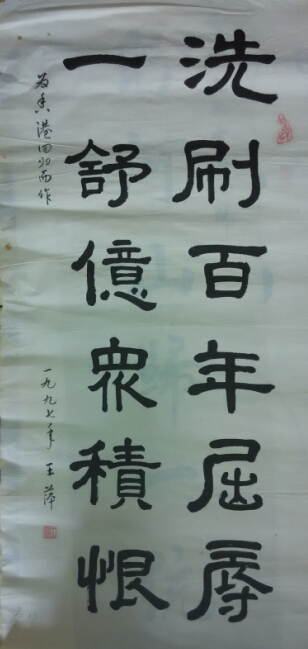 洗刷百年屈辱
一舒億眾積恨
为香港回归而作
一九九七年 王萍